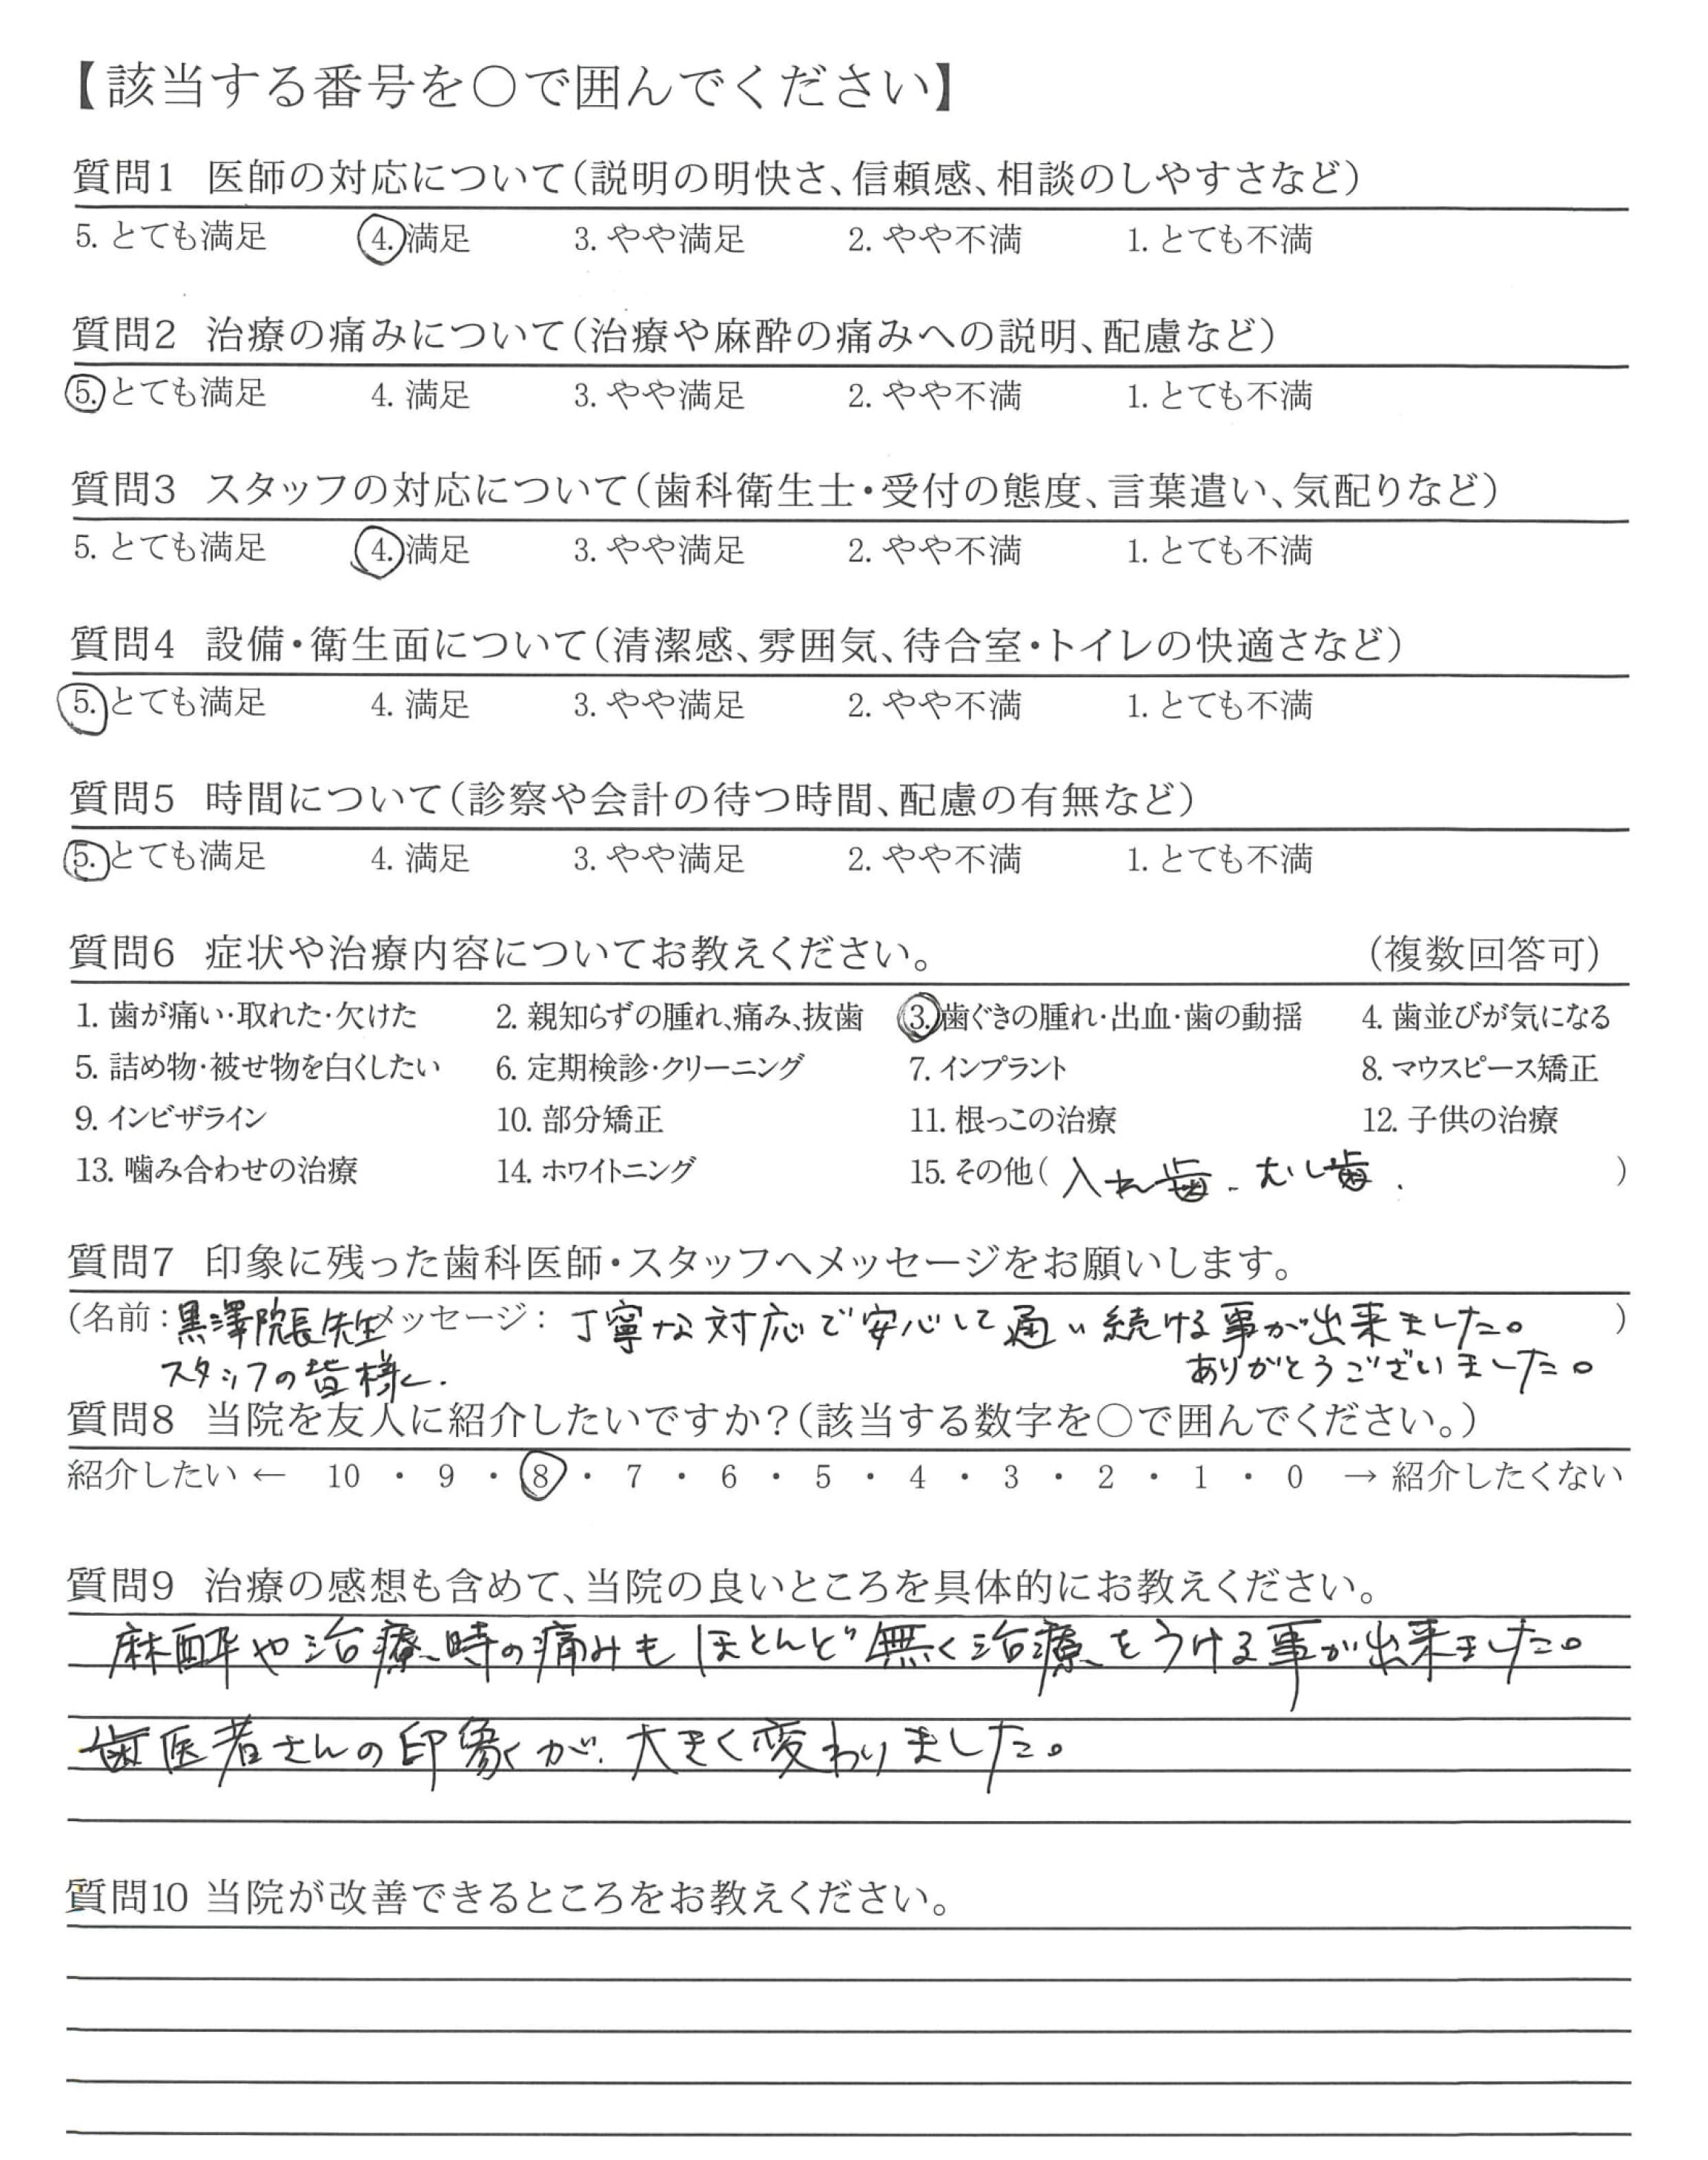 【該当する番号を○で囲んでください】
質問1 医師の対応について(説明の明快さ、信頼感、相談のしやすさなど)
5. とても満足 4. 満足 3. やや満足 2. やや不満 1. とても不満
質問2 治療の痛みについて(治療や麻酔の痛みへの説明、配慮など)
5. とても満足 4. 満足 3. やや満足 2. やや不満 1. とても不満
質問3 スタッフの対応について(歯科衛生士・受付の態度、言葉遣い、気配りなど)
5. とても満足 4. 満足 3. やや満足 2. やや不満 1. とても不満
質問4 設備・衛生面について(清潔感、雰囲気、待合室・トイレの快適さなど)
5. とても満足 4. 満足 3. やや満足 2. やや不満 1. とても不満
質問5 時間について(診察や会計の待つ時間、配慮の有無など)
5. とても満足 4. 満足 3. やや満足 2. やや不満 1. とても不満
質問6 症状や治療内容についてお教えください。 (複数回答可)
1. 歯が痛い・取れた・欠けた 2. 親知らずの腫れ、痛み、抜歯 3. 歯ぐきの腫れ・出血・歯の動揺 4. 歯並びが気になる
5. 詰め物・被せ物を白くしたい 6. 定期検診・クリーニング 7. インプラント 8. マウスピース矯正
9. インビザライン 10. 部分矯正 11. 根っこの治療 12. 子供の治療
13. 噛み合わせの治療 14. ホワイトニング 15. その他( 入れ歯. むし歯. )
質問7 印象に残った歯科医師・スタッフへメッセージをお願いします。
(名前: 黒澤院長先生 メッセージ: 丁寧な対応で安心して通い続ける事が出来ました。 )
スタッフの皆様へ. ありがとうございました。
質問8 当院を友人に紹介したいですか?(該当する数字を○で囲んでください。)
紹介したい ← 10 ・ 9 ・ 8 ・ 7 ・ 6 ・ 5 ・ 4 ・ 3 ・ 2 ・ 1 ・ 0 → 紹介したくない
質問9 治療の感想も含めて、当院の良いところを具体的にお教えください。
麻酔や治療時の痛みもほとんど無く治療をうける事が出来ました。
歯医者さんの印象が、大きく変わりました。
質問10 当院が改善できるところをお教えください。